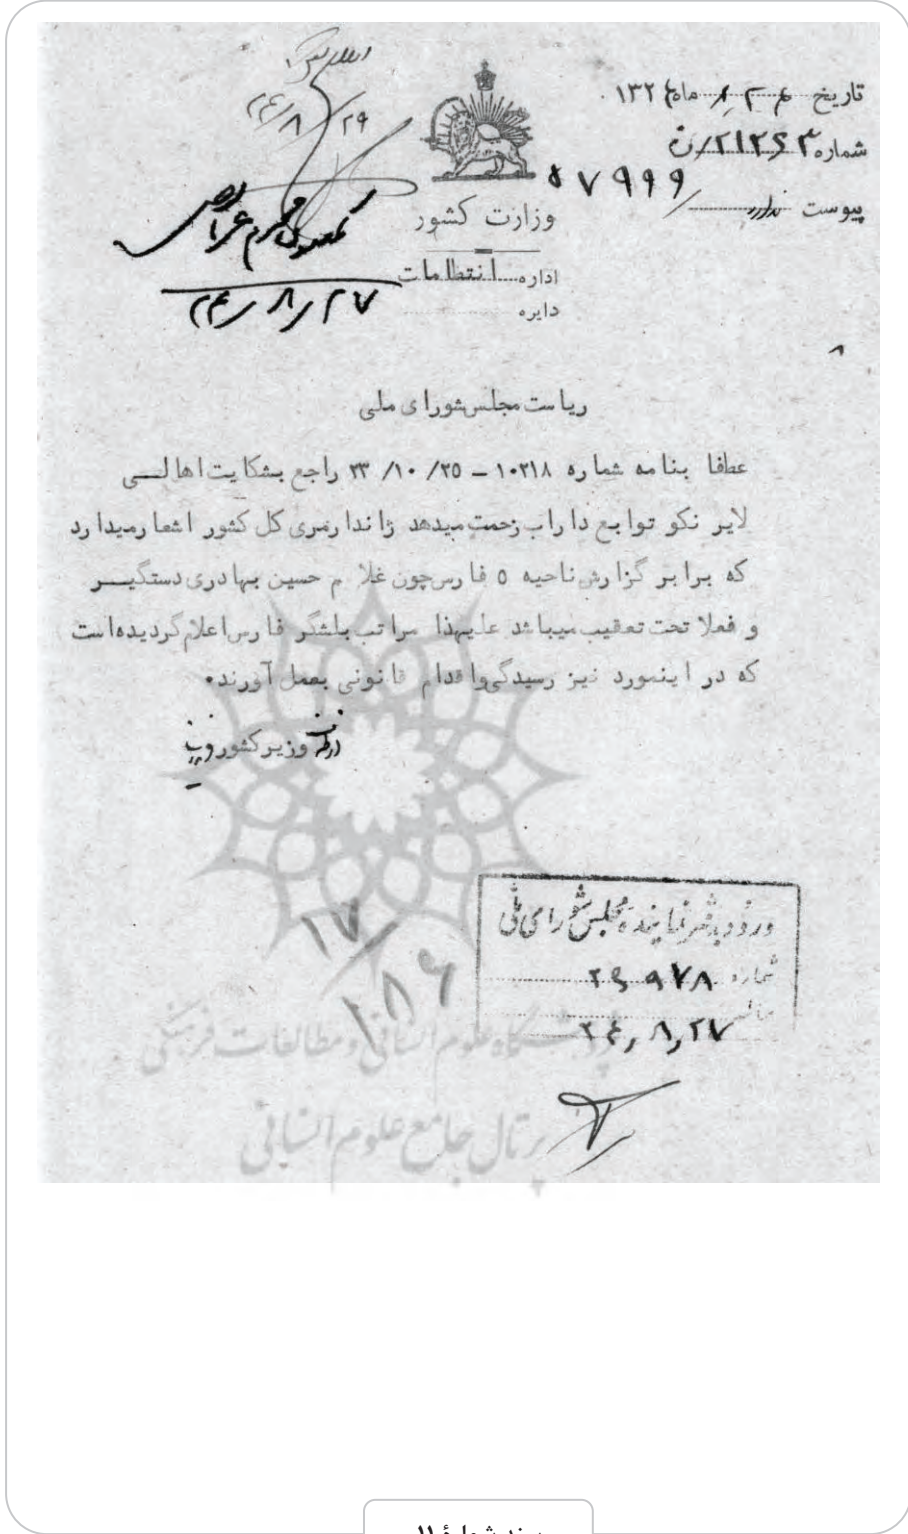 تاریخ ۲۶ ماه ۸ ۱۳۲۴
شماره ۲۱۲۶۳/ن
۵۷۹۹۹
پیوست ندارد
وزارت کشور
اداره انتظامات
دایره
۲۴/۸/۲۹
کمیسیون محترم عرایض
۲۴/۸/۲۷
ریاست مجلس شورای ملی
عطفا بنامه شماره ۱۰۲۱۸ – ۲۵/ ۱۰/ ۲۳ راجع بشکایت اهالی
لایر نکو توابع داراب زحمت میدهد ژاندارمری کل کشور اشعار میدارد
که برابر گزارش ناحیه ۵ فارس چون غلام حسین بهادری دستگیر
و فعلا تحت تعقیب میباشد علیهذا مراتب بلشگر فارس اعلام گردیده است
که در اینمورد نیز رسیدگی و اقدام قانونی بعمل آورند.
از طرف وزیر کشور
ورود بدفتر نماینده مجلس شورای ملی
شماره ۲۴۹۷۸
۲۴٫۸٫۲۷
۱۷/
۱۸۶
پژوهشگاه علوم انسانی و مطالعات فرهنگی
پرتال جامع علوم انسانی
سند شمارهٔ ۱۱